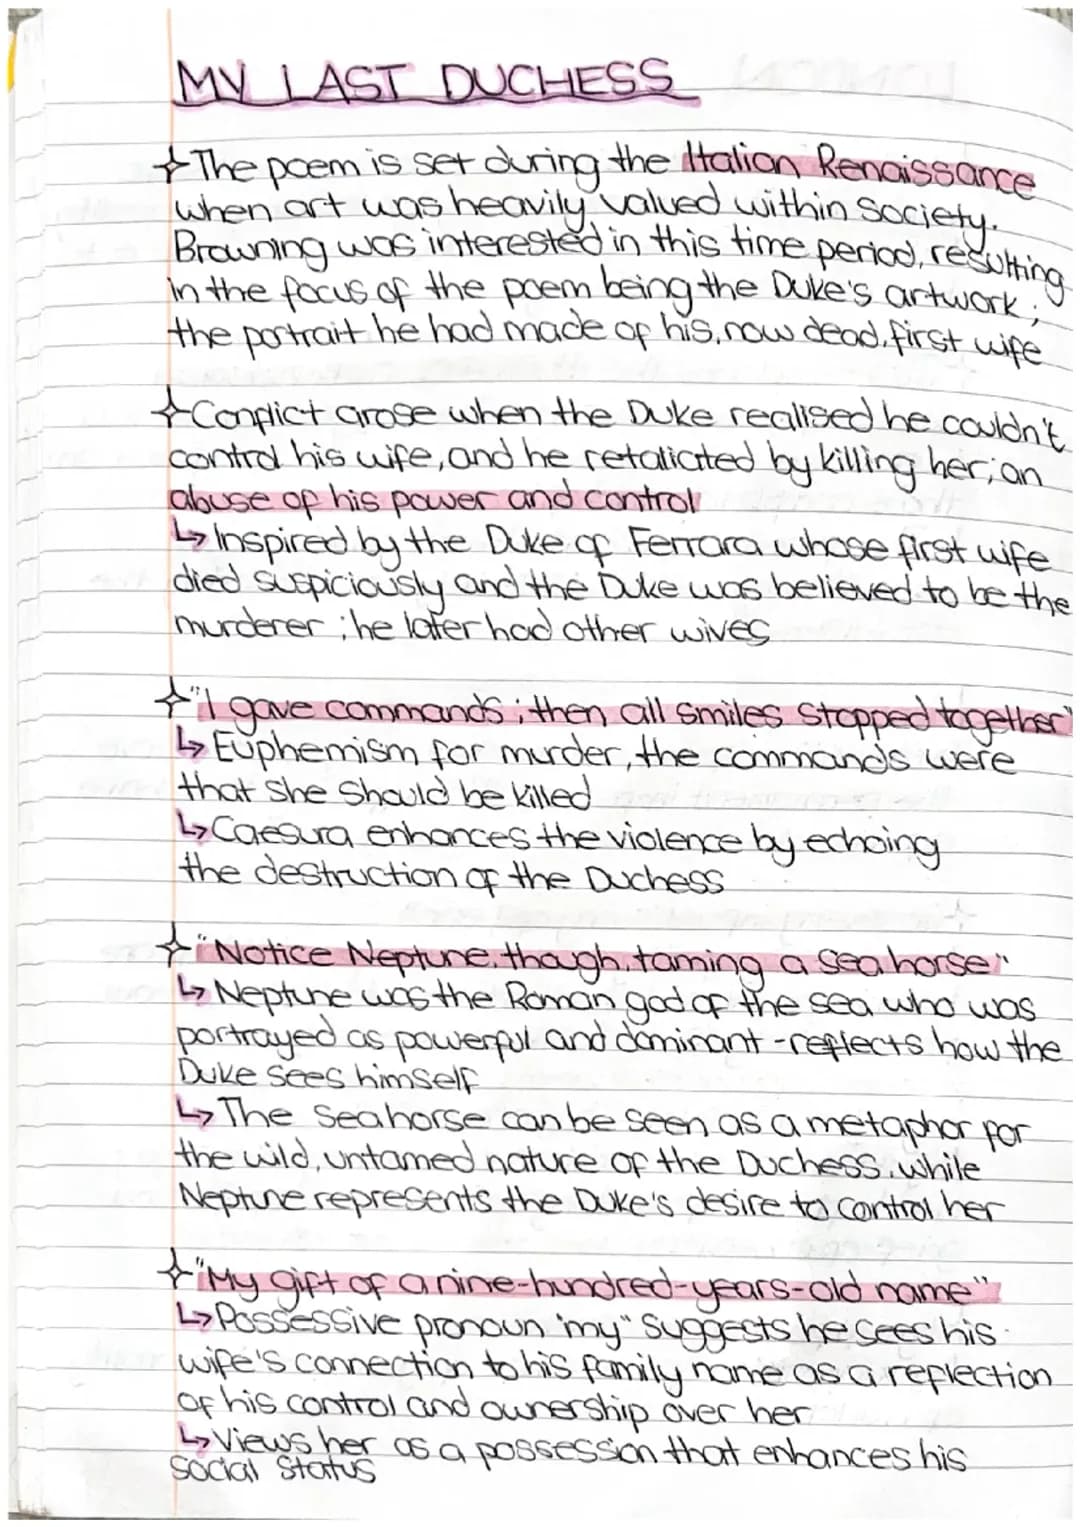 MY LAST DUCHESS
The poem is set during the Italian Renaissance
when art was heavily valued within society.
Browning was interested in this time period, resulting
in the focus of the poem being the Duke's artwork;
the portrait he had made of his, now dead, first wife
Conflict arose when the Duke realised he couldn't
control his wife, and he retaliated by killing her; an
abuse of his power and control
↳ Inspired by the Duke of Ferrara whose first wife
died suspiciously and the Duke was believed to be the
murderer; he later had other wives
"I gave commands; then all smiles stopped together"
↳ Euphemism for murder, the commands were
that she should be killed
↳ Caesura enhances the violence by echoing
the destruction of the Duchess
"Notice Neptune, though, taming a sea horse"
↳ Neptune was the Roman god of the sea who was
portrayed as powerful and dominant - reflects how the
Duke sees himself
↳ The seahorse can be seen as a metaphor for
the wild, untamed nature of the Duchess, while
Neptune represents the Duke's desire to control her
"My gift of a nine-hundred-years-old name"
↳ Possessive pronoun 'my" suggests he sees his
wife's connection to his family name as a reflection
of his control and ownership over her
↳ Views her as a possession that enhances his
social status